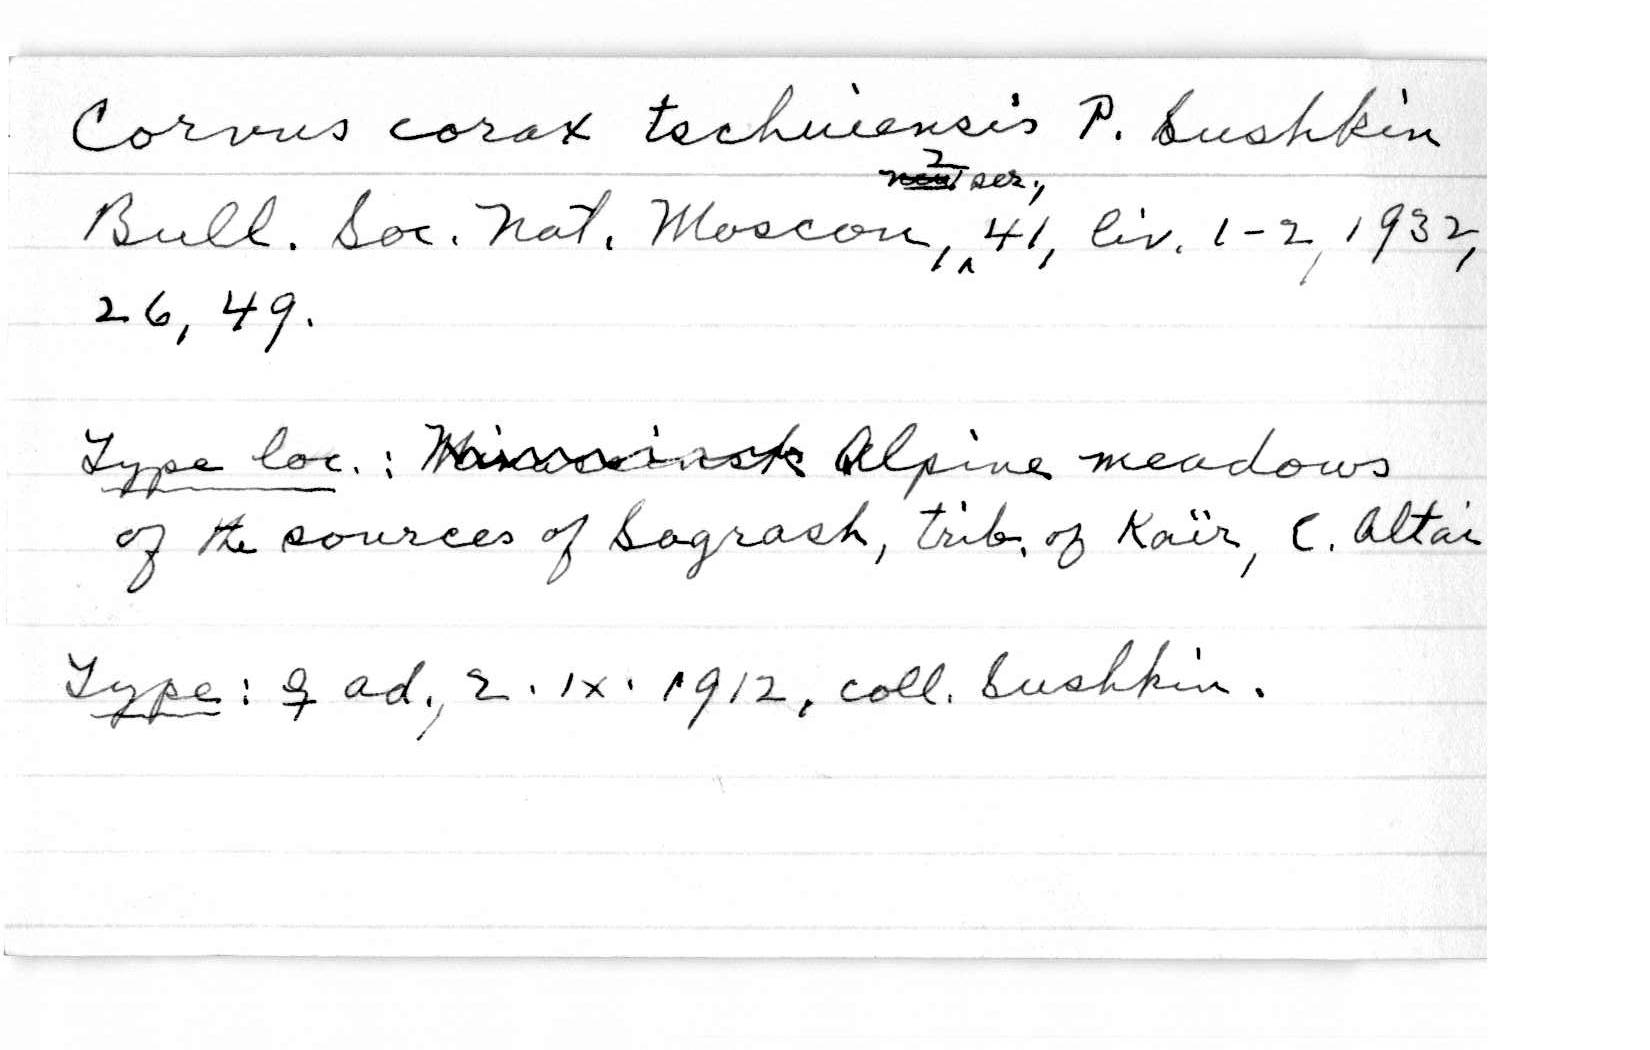 Corvus corax tschuiensis P. Sushkin
2 ser.,
Bull. Soc. Nat. Moscou, 41, liv. 1-2, 1932,
26, 49.
Type loc.: Alpine meadows
of the sources of Sagrash, trib. of Kaïr, C. Altai
Type: ♀ ad., 2. IX. 1912, coll. Sushkin.